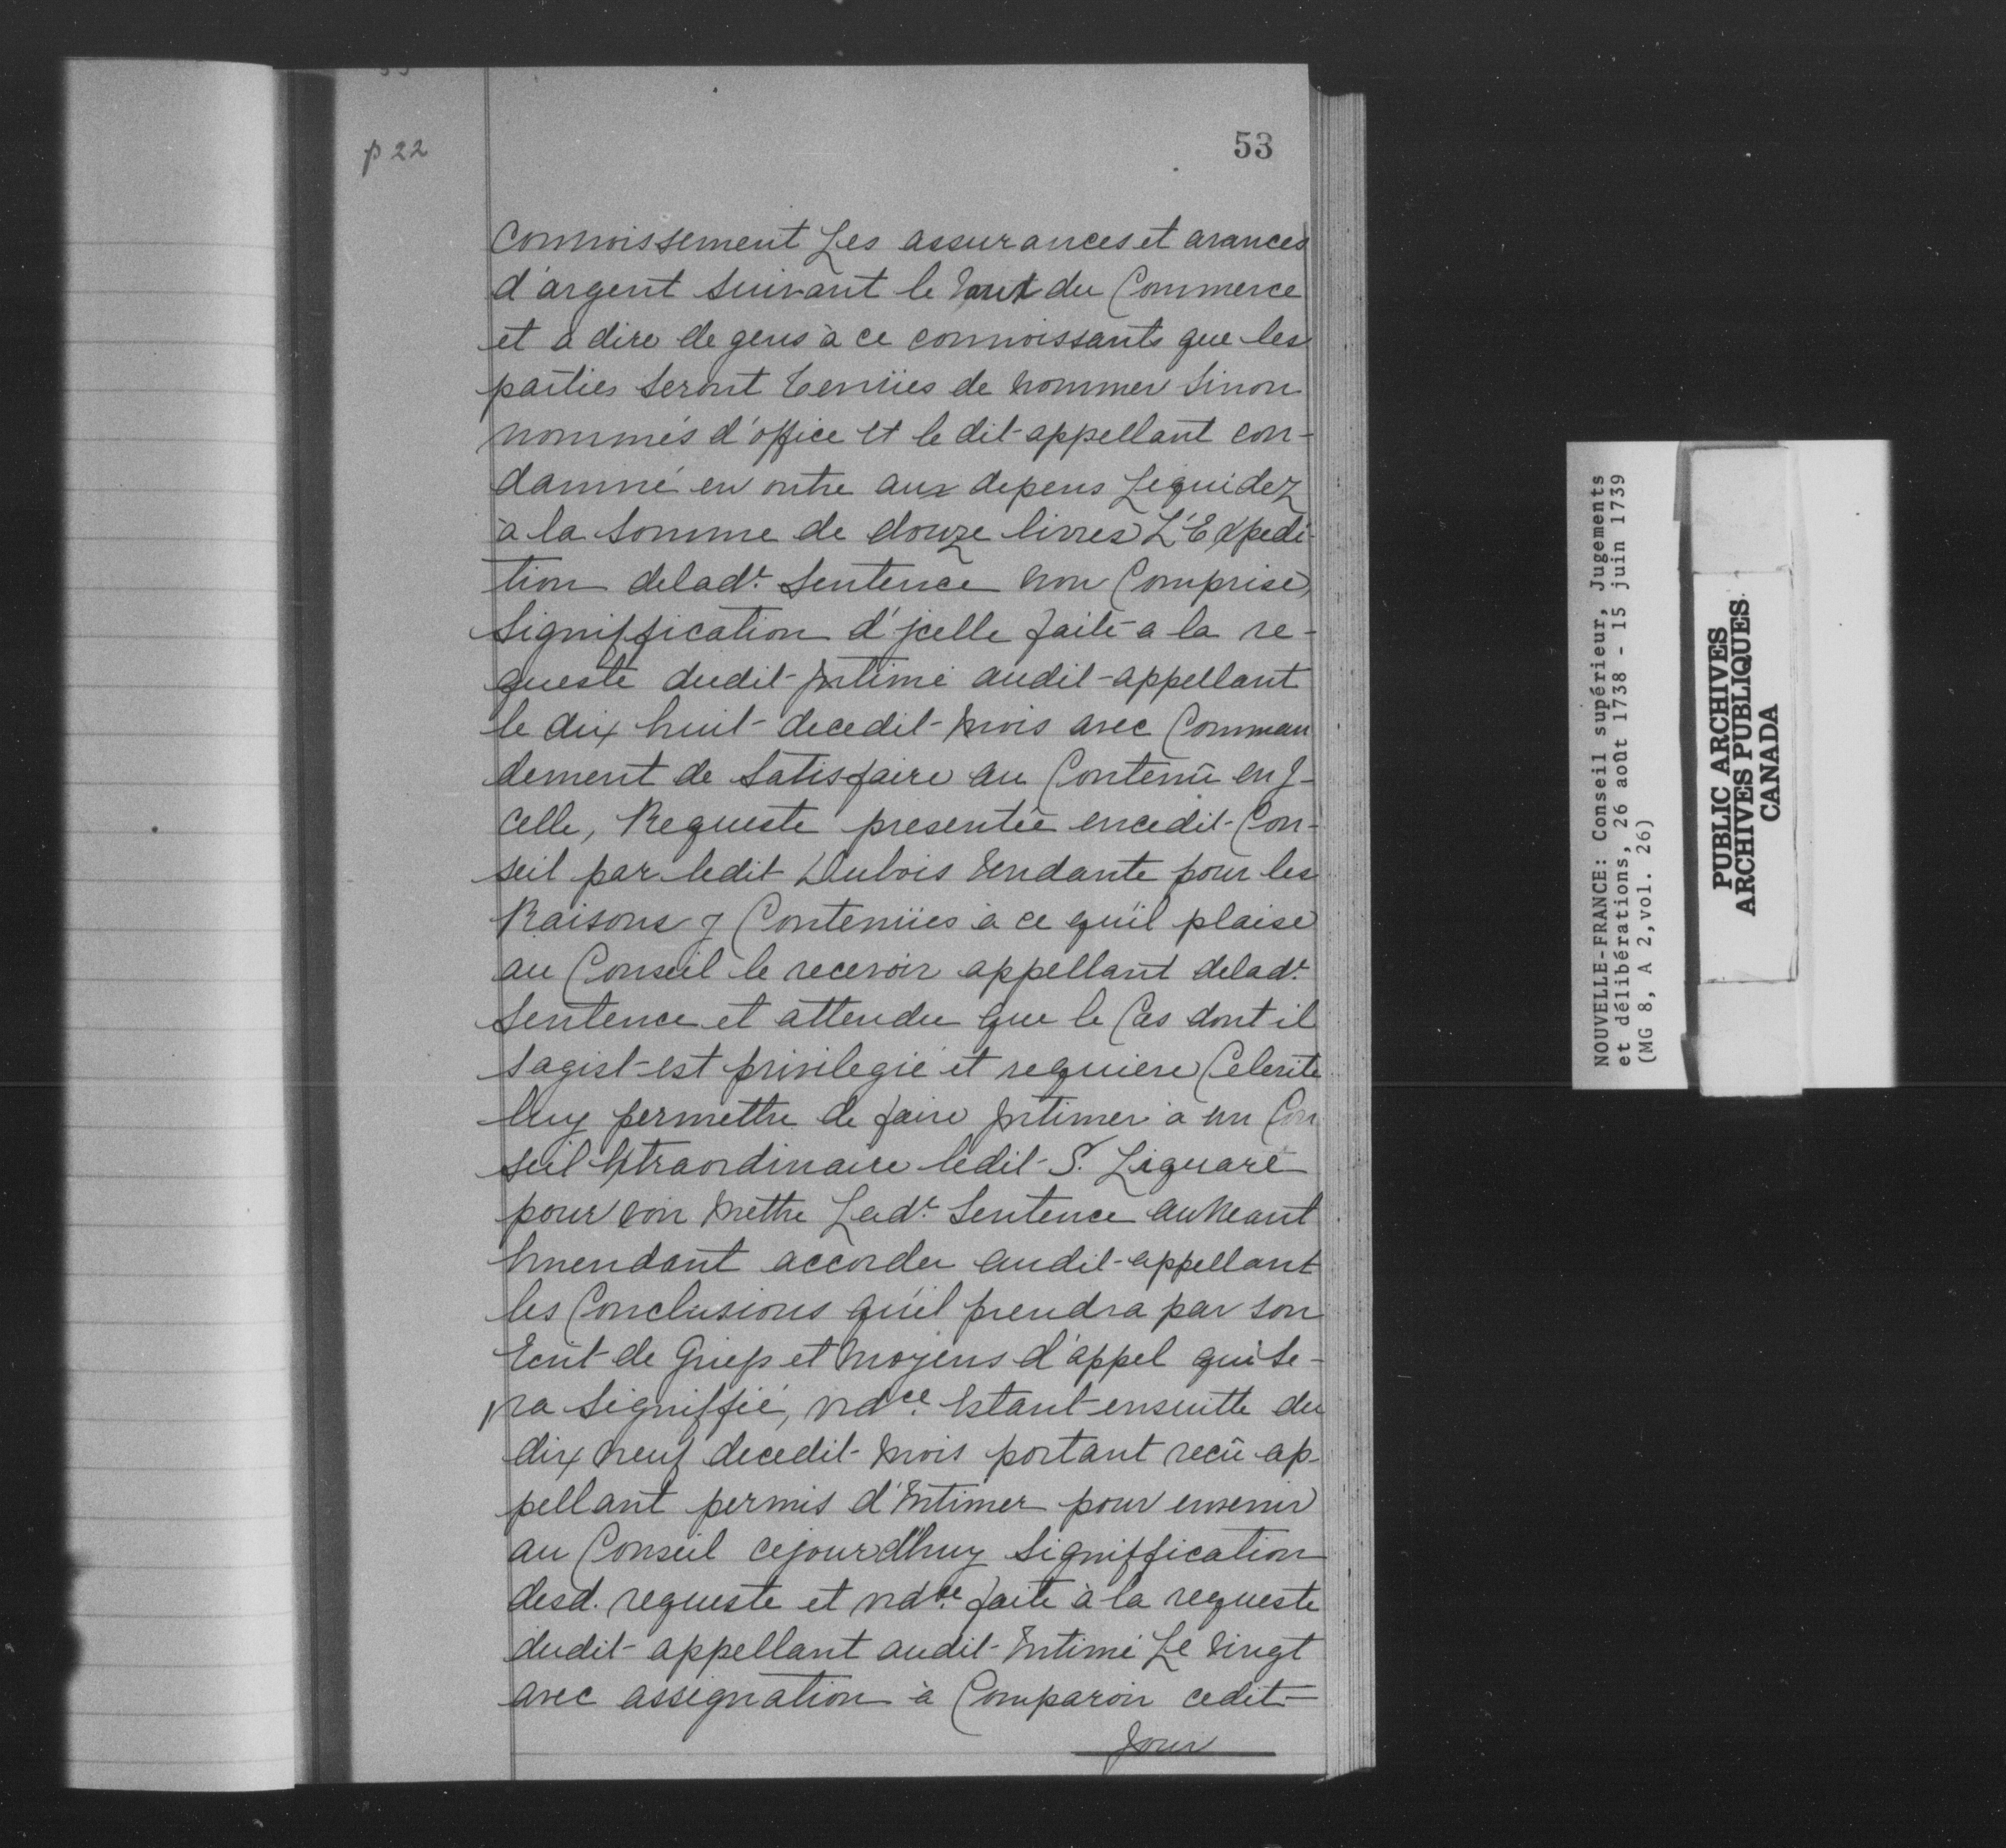 p 22
53
connoissement Les assurances et avances
d'argent suivant le tout du Commerce
et a dire de gens à ce connoissants que les
parties seront tenües de nommer sinon
nommés d'office et le dit appellant con-
damné en outre aux depens Liquidez
à la somme de douze livres L'Expedi-
tion delad.t Sentence non Comprise,
Signiffication d'jcelle faite a la re-
queste dudit Jntimé audit appellant
le dix huit decedit mois avec Comman
dement de satisfaire au Contenû en J-
celle, Requeste presentée encedit Con-
seil par ledit Dubois tendante pour les
Raisons y Contenües à ce qu'il plaise
au Conseil le recevoir appellant delad.t
Sentence et attendu que le Cas dont il
sagist est privilegié et requiere Celerite
luy permettre de faire Jntimer à un Con
seil Extraordinaire ledit S. Liquart
pour voir mettre Lad.t Sentence au Neant
Emendant accorder audit appellant
les Conclusions qu'il prendra par son
Ecrit de Griefs et moyens d'appel qui se-
ra signiffié, ord.ce Estant ensuitte du
dix neuf decedit mois portant recû ap-
pellant permis d'Intimer pour envenir
au Conseil cejourdhuy signiffication
desd. requeste et ord.ce faite à la requeste
dudit appellant audit Intimé Le vingt
avec assignation à Comparoir cedit
Jour
NOUVELLE-FRANCE: Conseil supérieur, Jugements
et délibérations, 26 août 1738 - 15 juin 1739
(MG 8, A 2, vol. 26)
PUBLIC ARCHIVES
ARCHIVES PUBLIQUES
CANADA